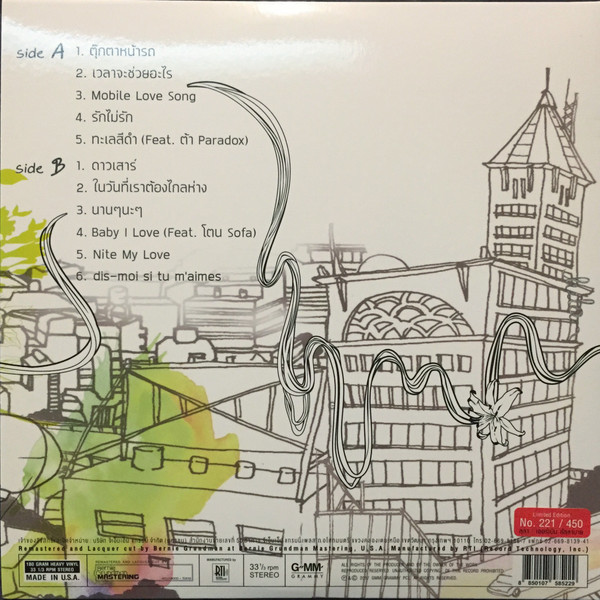 side A
1. ตุ๊กตาหน้ารถ
2. เวลาจะช่วยอะไร
3. Mobile Love Song
4. รักไม่รัก
5. ทะเลสีดำ (Feat. ต้า Paradox)
side B
1. ดาวเสาร์
2. ในวันที่เราต้องไกลห่าง
3. นานๆนะๆ
4. Baby I Love (Feat. โตน Sofa)
5. Nite My Love
6. dis-moi si tu m'aimes
Limited Edition
No. 221 / 450
Remastered and Lacquer cut by Bernie Grundman at Bernie Grundman Mastering, U.S.A. Manufactured by RTI (Record Technology, Inc.)
180 GRAM HEAVY VINYL
33 1/3 RPM STEREO
MADE IN U.S.A.
MASTERING
RTI
33⅓ rpm
STEREO
GMM
GRAMMY
8 850107 585229